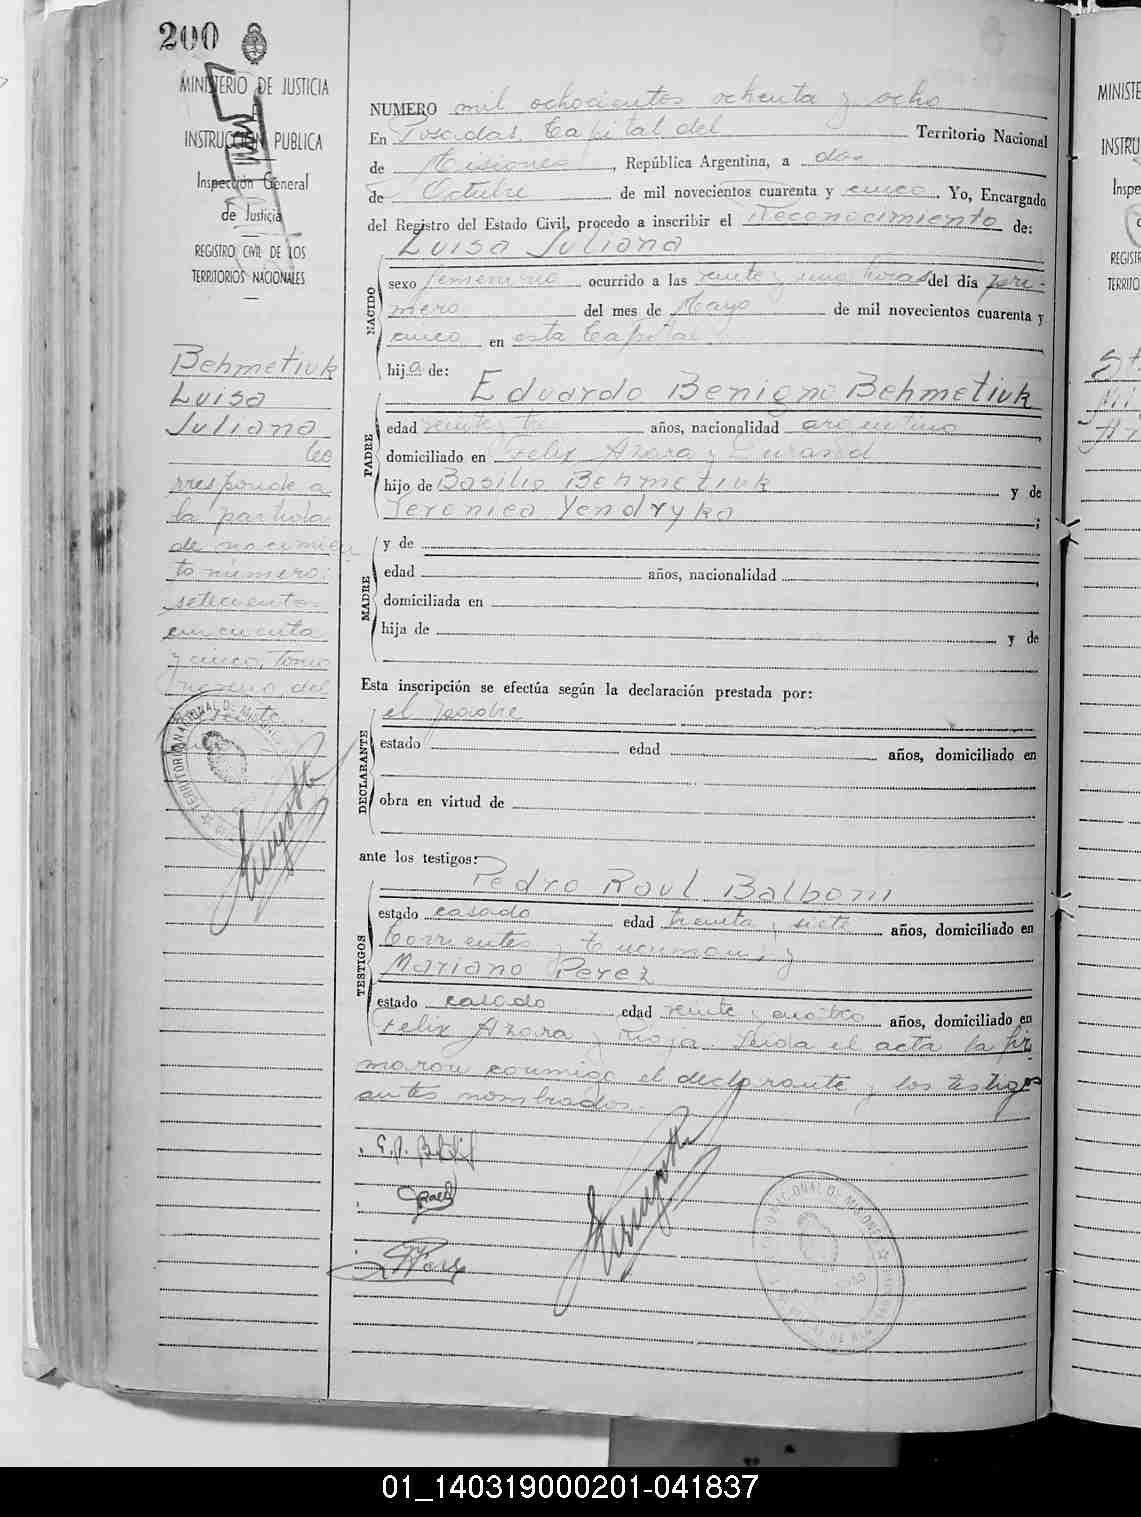 200
MINISTERIO DE JUSTICIA
E
INSTRUCCIÓN PUBLICA
Inspección General
de Justicia
REGISTRO CIVIL DE LOS
TERRITORIOS NACIONALES
Behmetiuk
Luisa
Juliana
Co
rresponde a
la partida
de nacimien
to número:
setecientos
cincuenta
y cinco, tomo
del
NUMERO mil ochocientos ochenta y ocho
En Posadas, Capital del Territorio Nacional
de Misiones, República Argentina, a dos
de Octubre de mil novecientos cuarenta y cinco. Yo, Encargado
del Registro del Estado Civil, procedo a inscribir el Reconocimiento de:
Luisa Juliana
NACIDO
sexo femenino ocurrido a las veinte y una horas del día pri-
mero del mes de Mayo de mil novecientos cuarenta y
cinco en esta Capital
hija de:
Eduardo Benigno Behmetiuk
PADRE
edad veinte y años, nacionalidad argentino,
domiciliado en Felix Azara y
hijo de Basilio Behmetiuk y de
Veronica Yendryka;
MADRE
y de
edad años, nacionalidad,
domiciliada en
hija de y de
Esta inscripción se efectúa según la declaración prestada por:
el padre
DECLARANTE
estado edad años, domiciliado en
obra en virtud de
ante los testigos:
Pedro Raul Balboni
TESTIGOS
estado casado edad treinta y siete años, domiciliado en
Corrientes y Tucuman, y
Mariano Perez
estado casado edad veinte y cuatro años, domiciliado en
Felix Azara y Rioja. Leida el acta la fir
maron conmigo el declarante y los testigos
antes nombrados.
MINISTE
INSTRU
Inspe
REGISTR
TERRITO
01_140319000201-041837